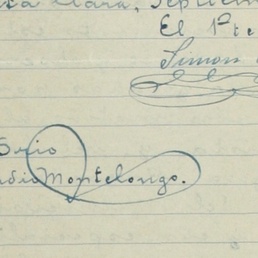 Clara, Septiem
El 1º te
Simon
Srio
Montelongo.